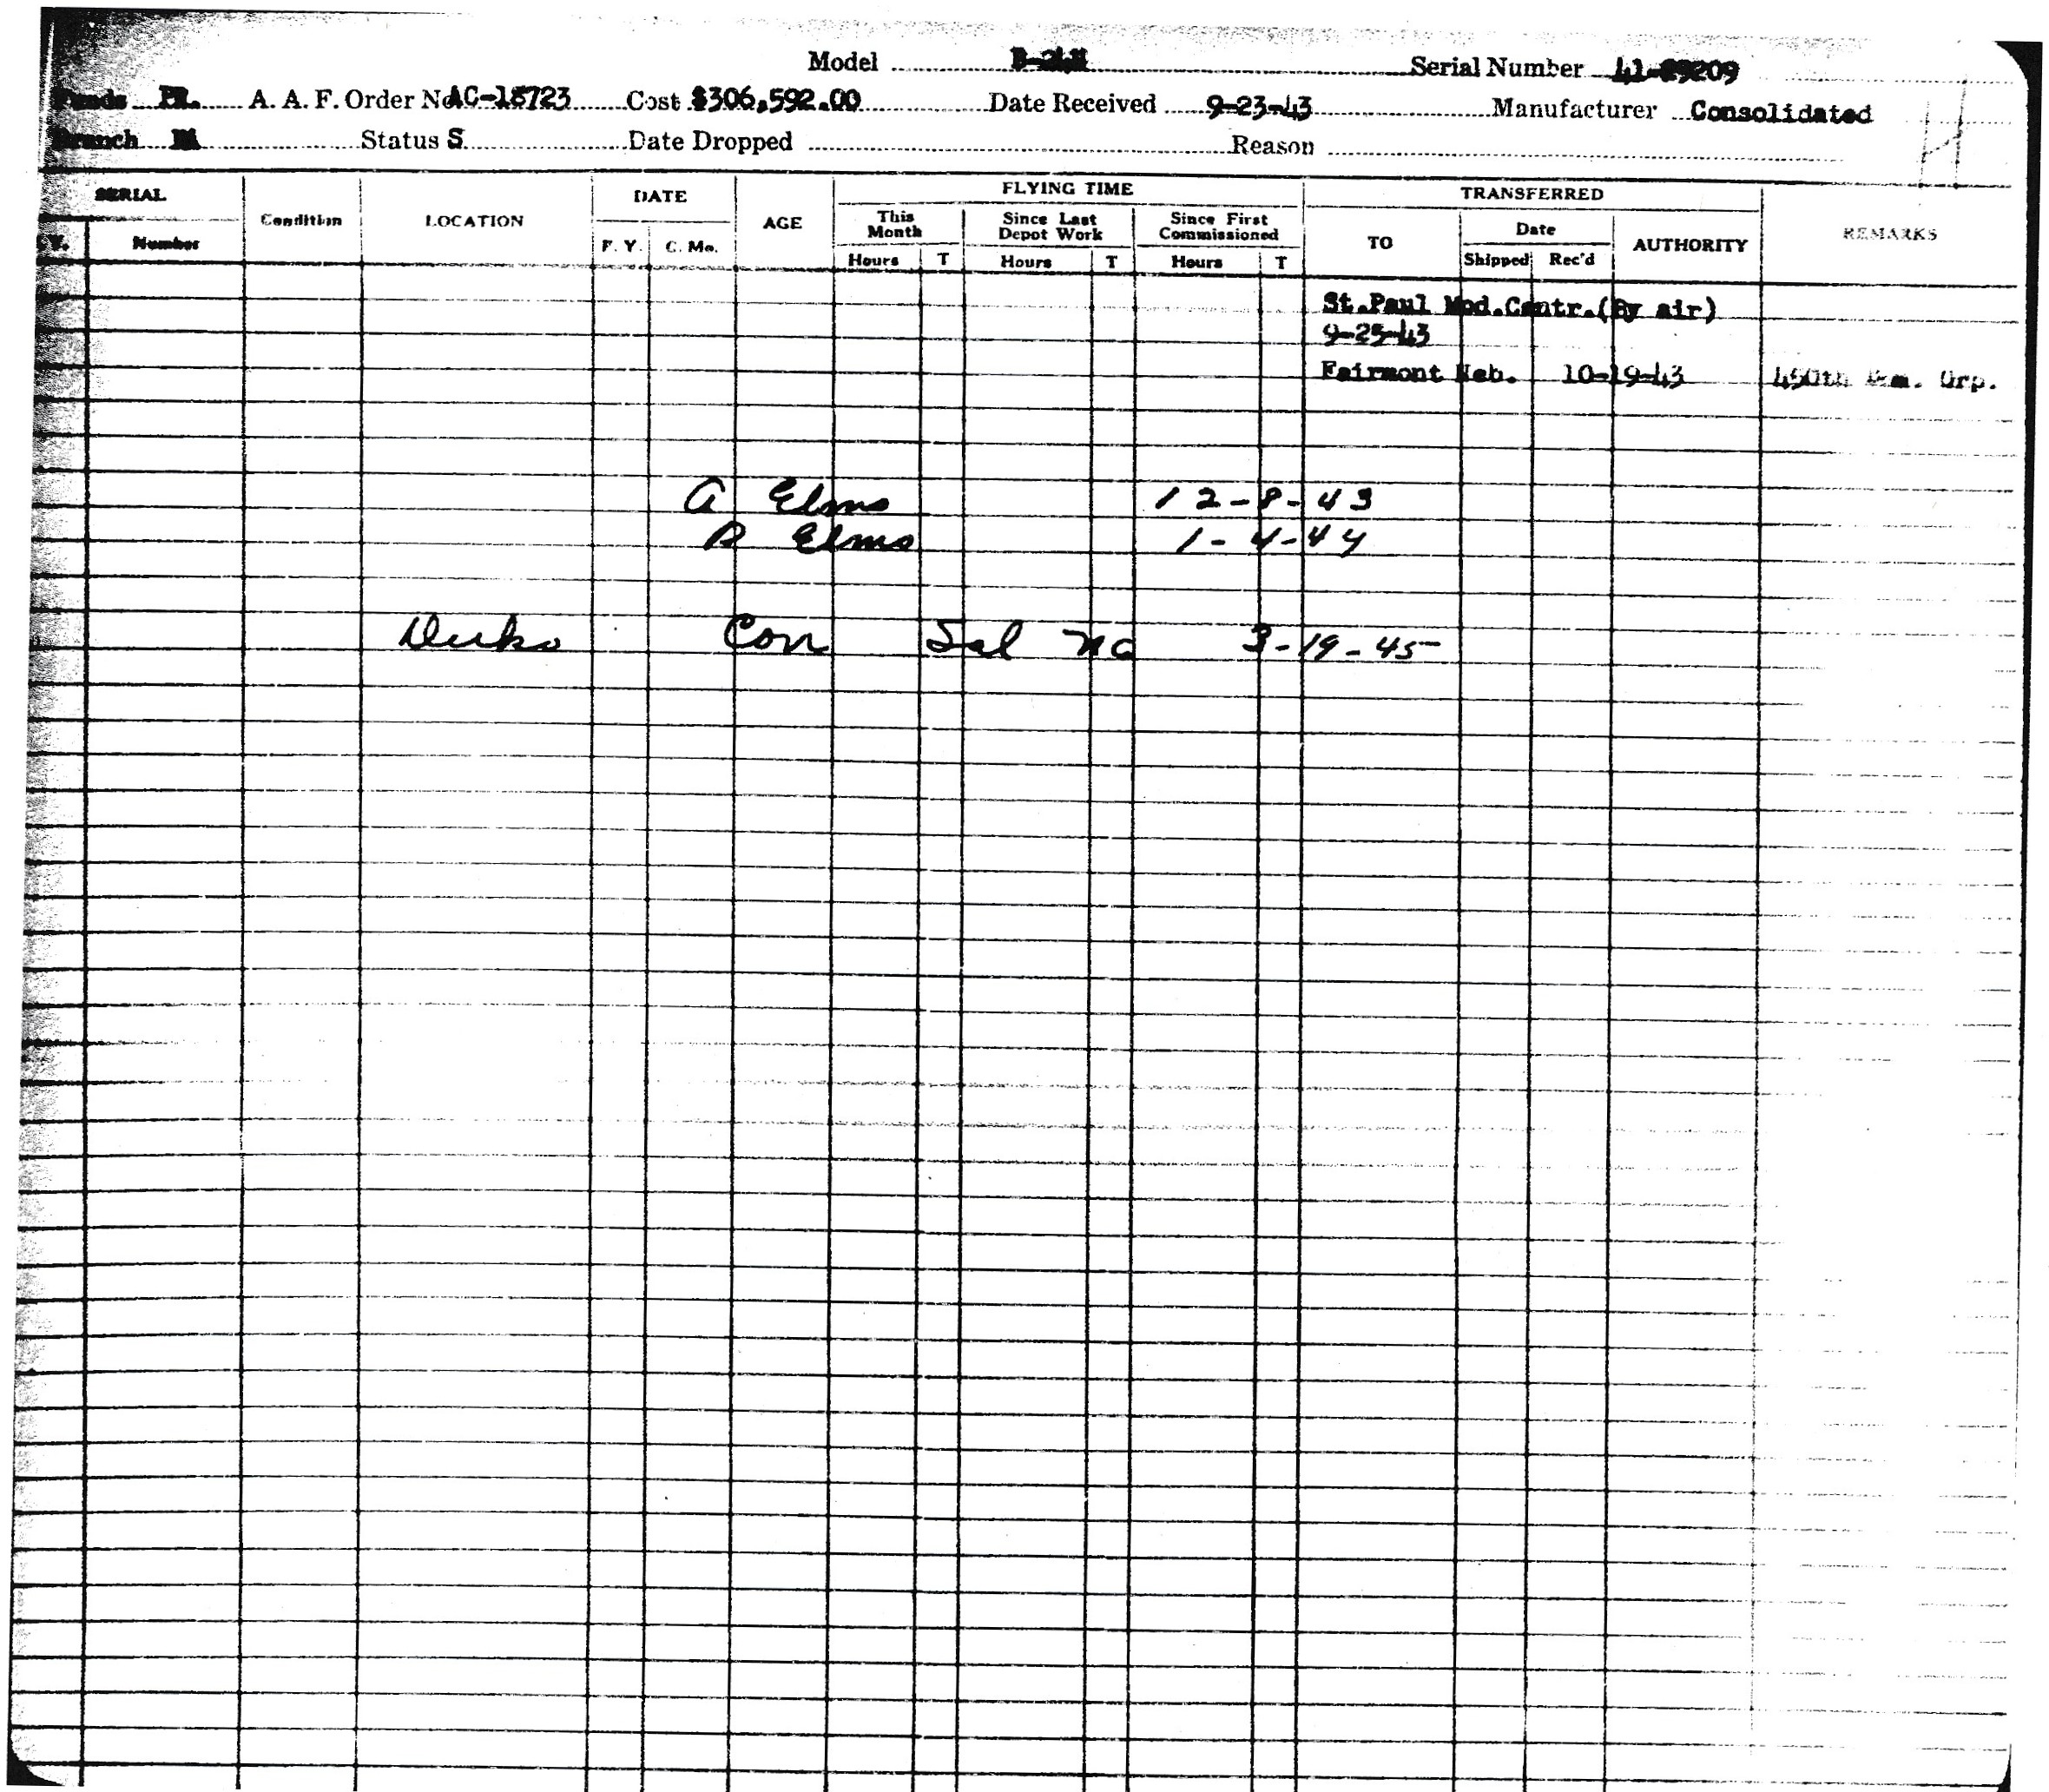 Model B-24H Serial Number 41-29209
Funds PR. A. A. F. Order No AC-18723 Cost $306,592.00 Date Received 9-23-43 Manufacturer Consolidated
Branch Status S Date Dropped Reason
SERIAL Condition LOCATION DATE AGE FLYING TIME TRANSFERRED REMARKS
Number F. Y. C. Mo. This Month Since Last Depot Work Since First Commissioned TO Date AUTHORITY
Hours T Hours T Hours T Shipped Rec'd
St.Paul Mod.Centr.(By air)
9-25-43
Fairmont Neb. 10-19-43 450th Bom. Grp.
A Elms 12-8-43
R Elms 1-4-44
Con Sal 3-19-45